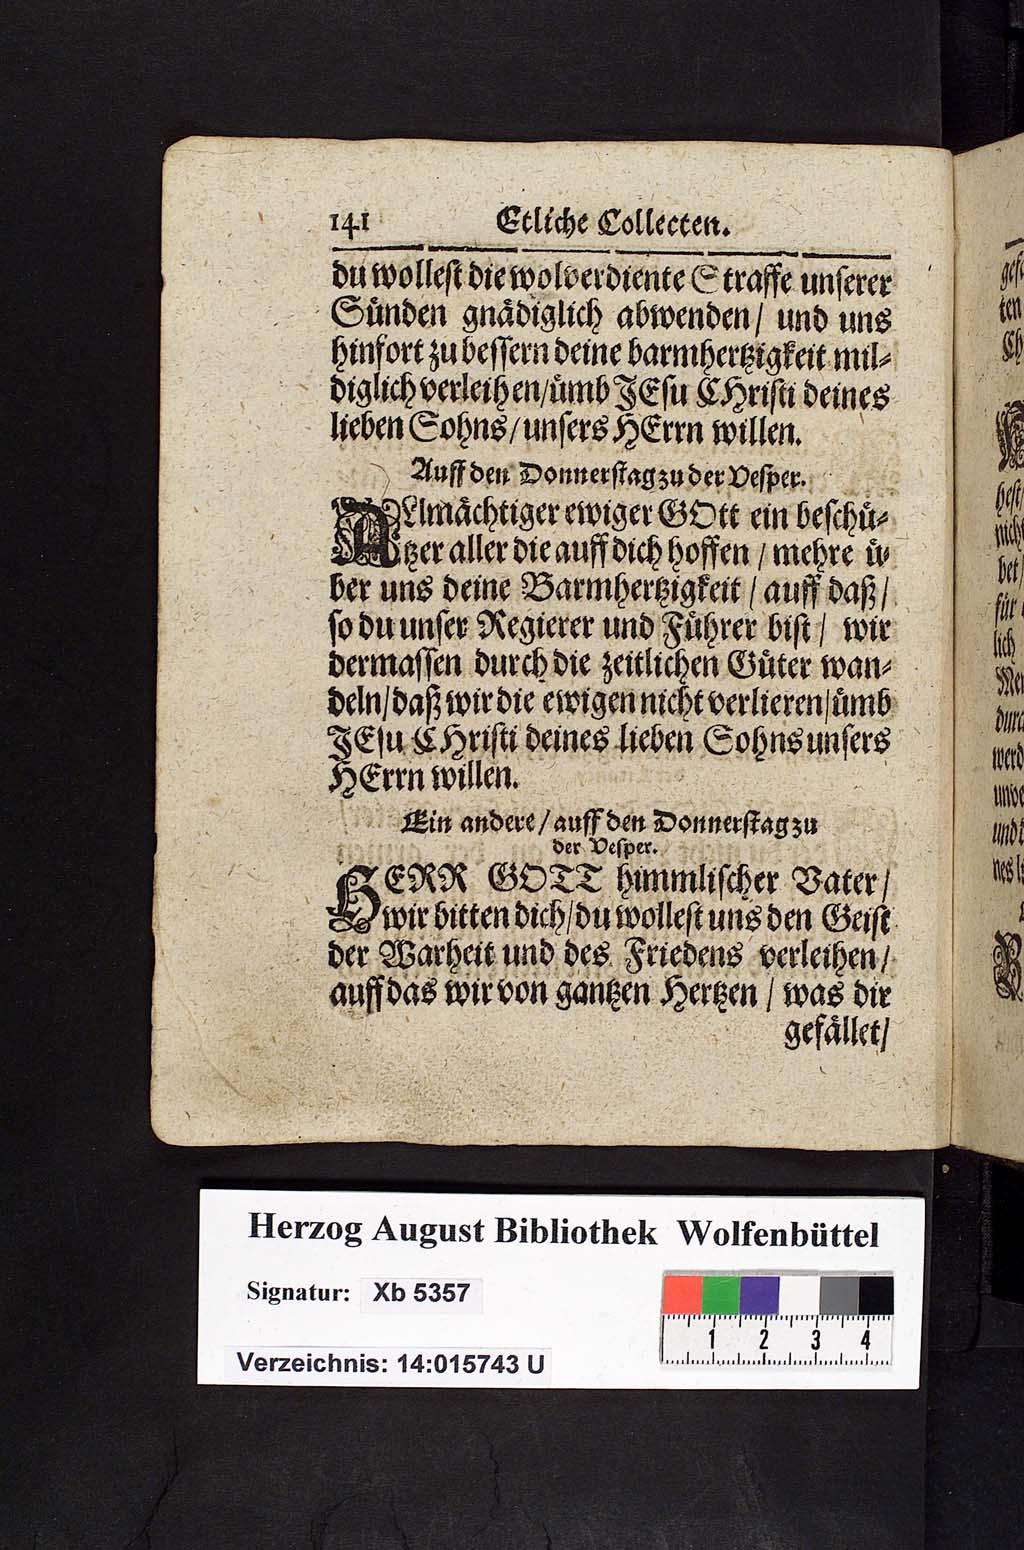 141 Etliche Collecten.
du wollest die wolverdiente Straffe unserer
Sünden gnädiglich abwenden / und uns
hinfort zu bessern deine barmhertzigkeit mil-
diglich verleihen / ümb JEsu CHristi deines
lieben Sohns / unsers HErrn willen.
Auff den Donnerstag zu der Vesper.
ALlmächtiger ewiger GOtt ein beschü-
tzer aller die auff dich hoffen / mehre ü-
ber uns deine Barmhertzigkeit / auff daß /
so du unser Regierer und Führer bist / wir
dermassen durch die zeitlichen Güter wan-
deln / daß wir die ewigen nicht verlieren / ümb
JEsu CHristi deines lieben Sohns unsers
HErrn willen.
Ein andere / auff den Donnerstag zu
der Vesper.
HERR GOTT himmlischer Vater /
wir bitten dich / du wollest uns den Geist
der Warheit und des Friedens verleihen /
auff das wir von gantzen Hertzen / was dir
gefället /
Herzog August Bibliothek Wolfenbüttel
Signatur: Xb 5357
Verzeichnis: 14:015743 U
1 2 3 4